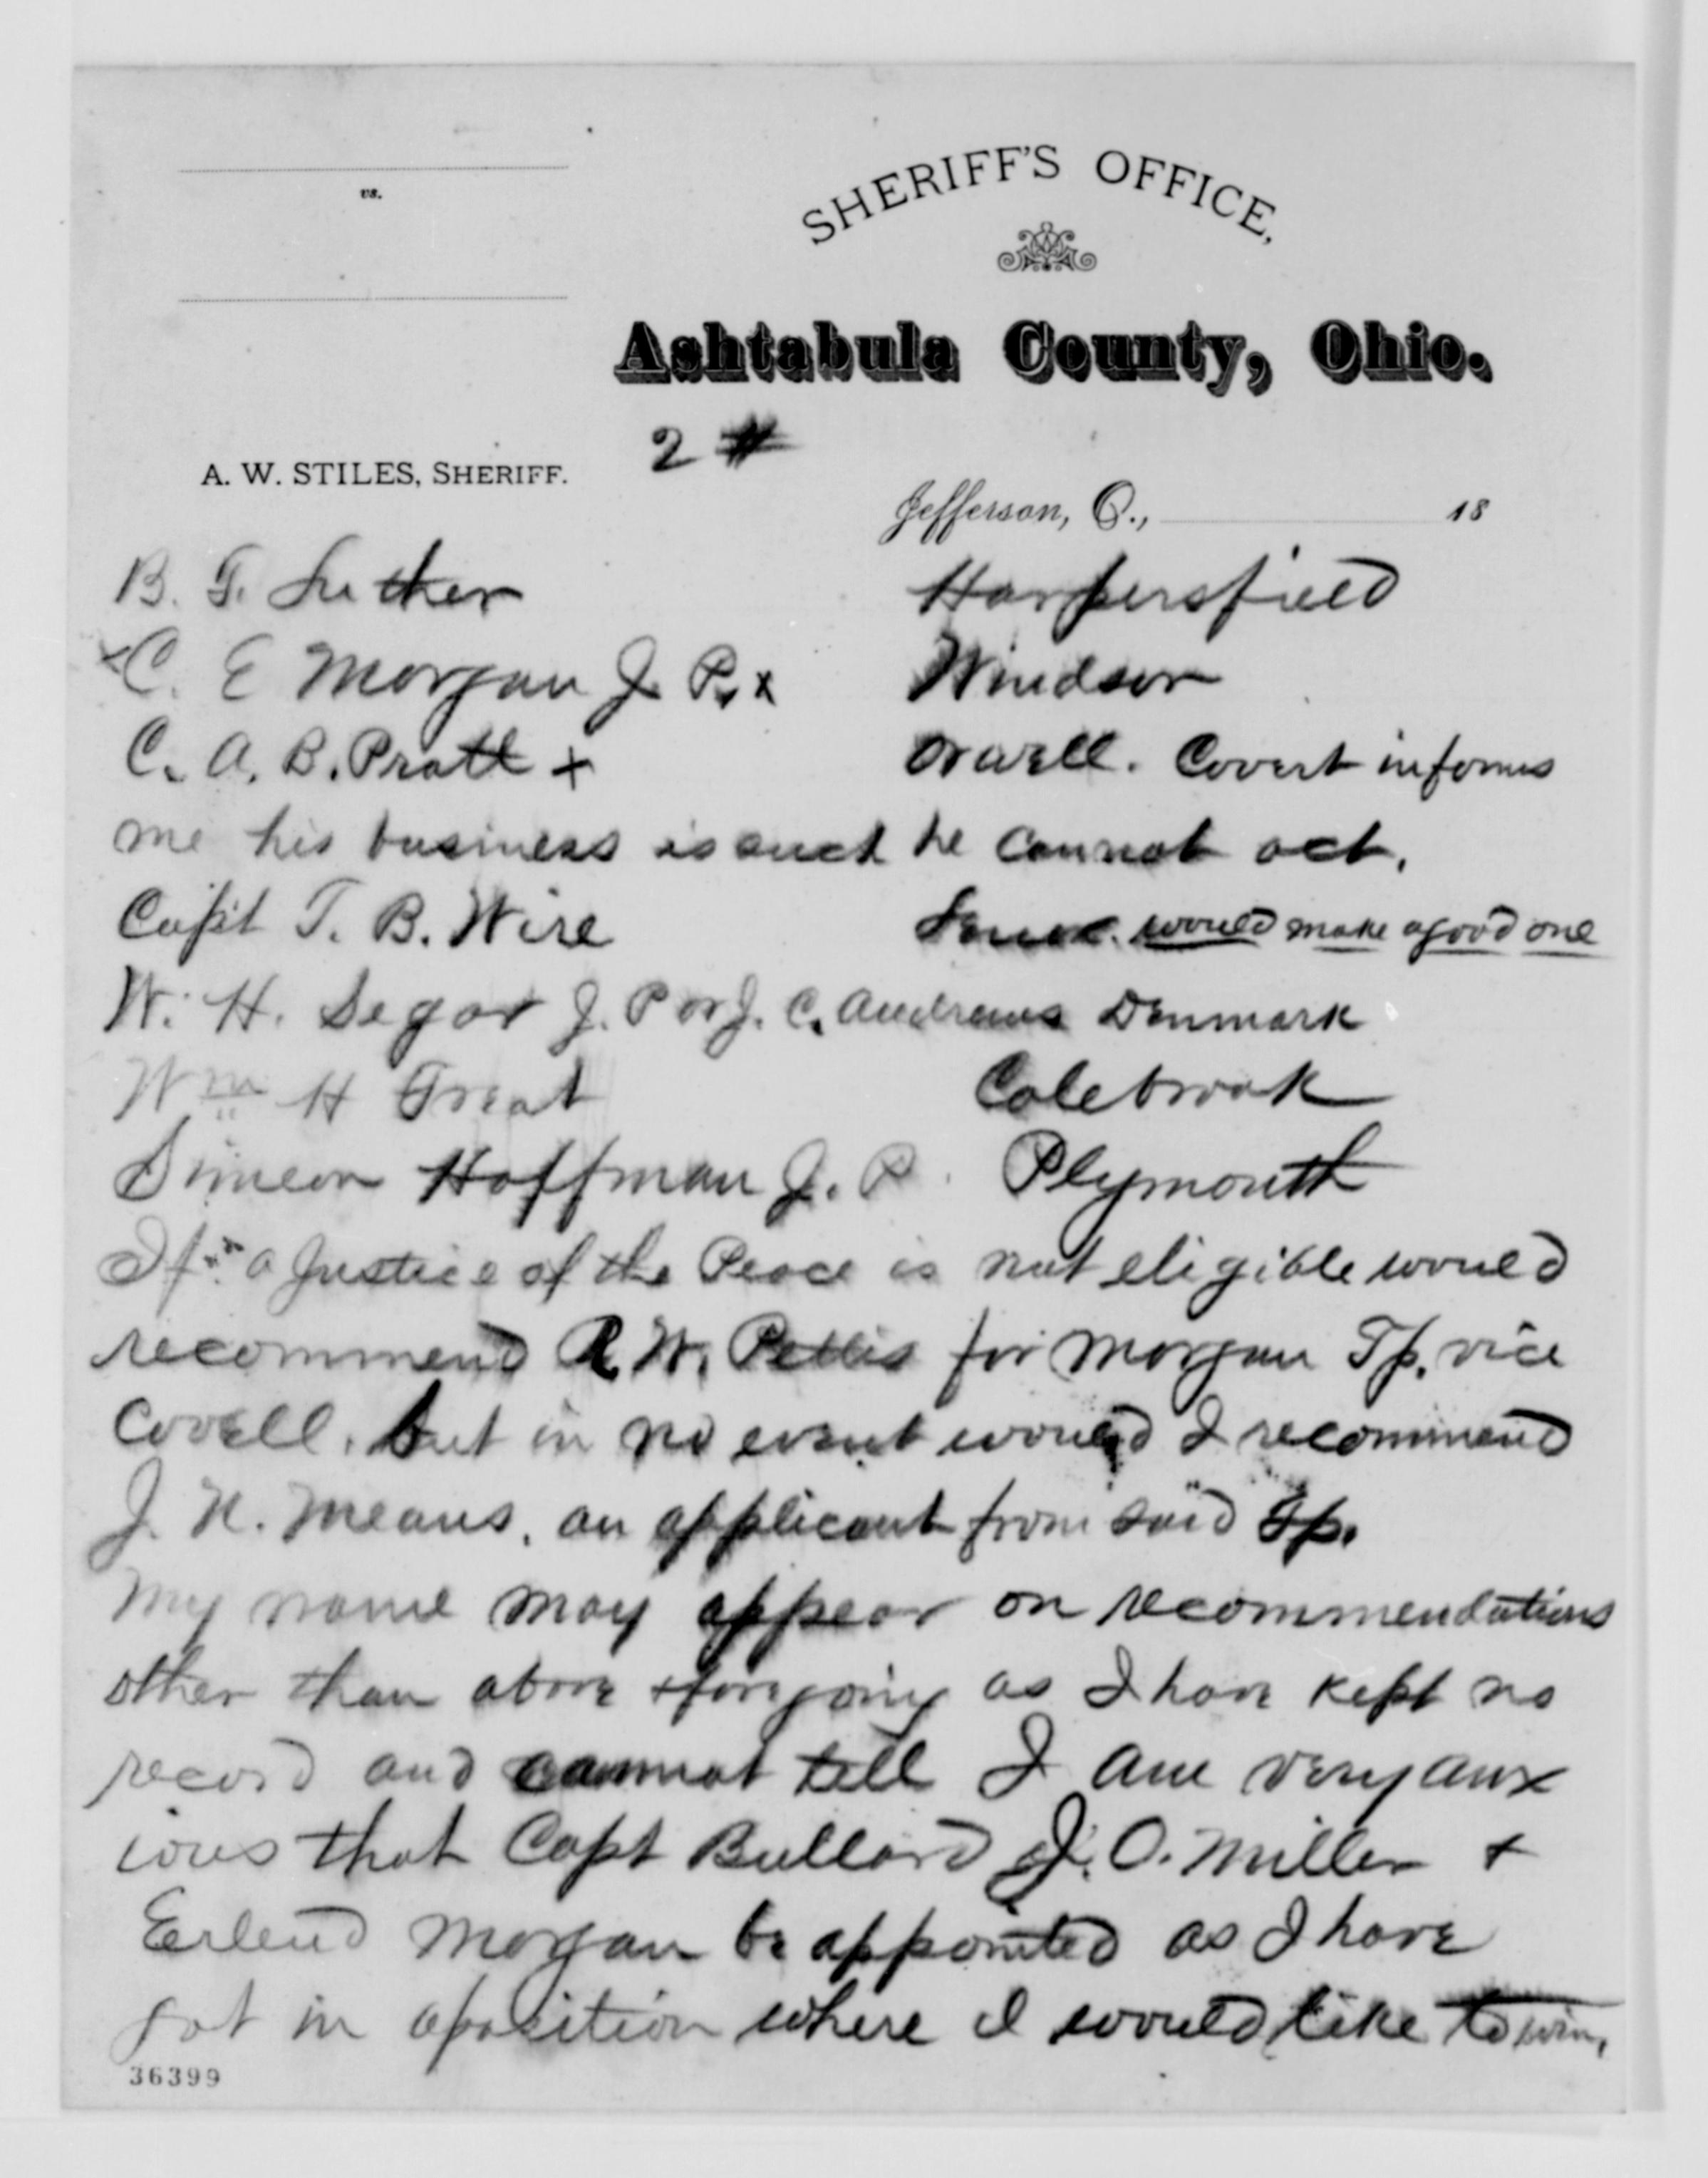 vs.
SHERIFF'S OFFICE,
Ashtabula County, Ohio.
2 #
A. W. STILES, SHERIFF.
Jefferson, O., 18
B. T. Luther Harpersfield
x C. E Morgan J. P. x Windsor
C. A. B. Pratt + Orwell. Covert informs
me his business is such he cannot act.
Capt T. B. Wire would make a good one
W. H. Segar J. P or J. C. Andrews Denmark
Wm H Treat Colebrook
Simeon Hoffman J. P. Plymouth
If a Justice of the Peace is not eligible would
recommend R. W. Pettis for Morgan Tp. vice
Covell. but in no event would I recommend
J. N. Means, an applicant from said Tp.
My name may appear on recommendations
other than above & foregoing as I have kept no
record and cannot tell I am very anx
ious that Capt Bullard J. O. Miller +
Erlend Morgan be appointed as I have
got in aposition where I would like to win.
36399